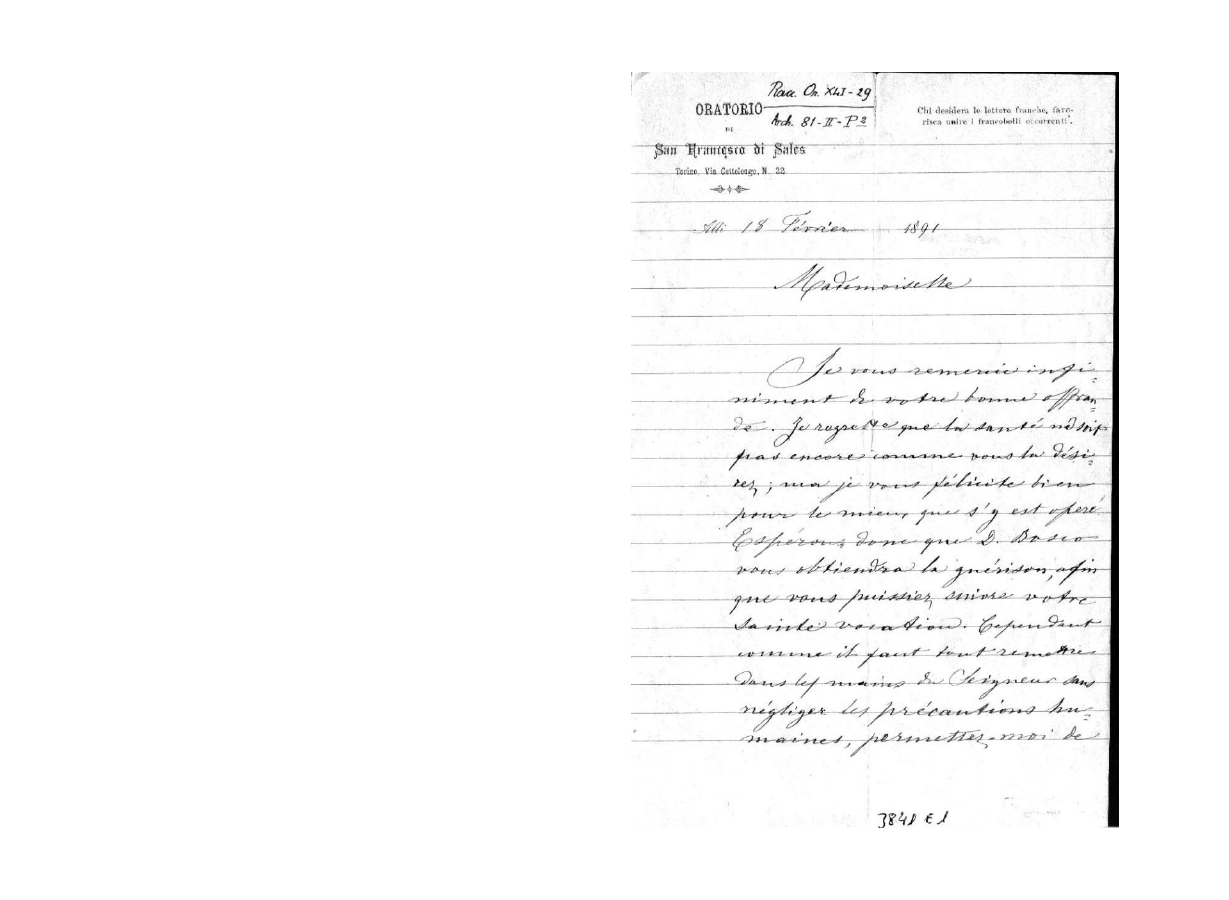 Racc. On. XLI-29
ORATORIO
DI
Arch. 81-II-P2
San Francesco di Sales
Torino, Via Cottolengo, N. 32
Chi desidera le lettere franche, favo-
risca unire i francobolli occorrenti.
Alli 18 Février 1891
Mademoiselle
Je vous remercie infi=
niment de votre bonne offran=
de. Je regrette que la santé ne soit
pas encore comme vous la dési=
rez; ma je vous félicite bien
pour le mieux que s'y est operé
Espérons donc que D. Bosco
vous obtiendra la guérison, afin
que vous puissiez suivre votre
sainte vocation. Cependant
comme il faut tout remettre
dans les mains du Seigneur sans
négliger les précautions hu=
maines, permettez-moi de
3841 E 1